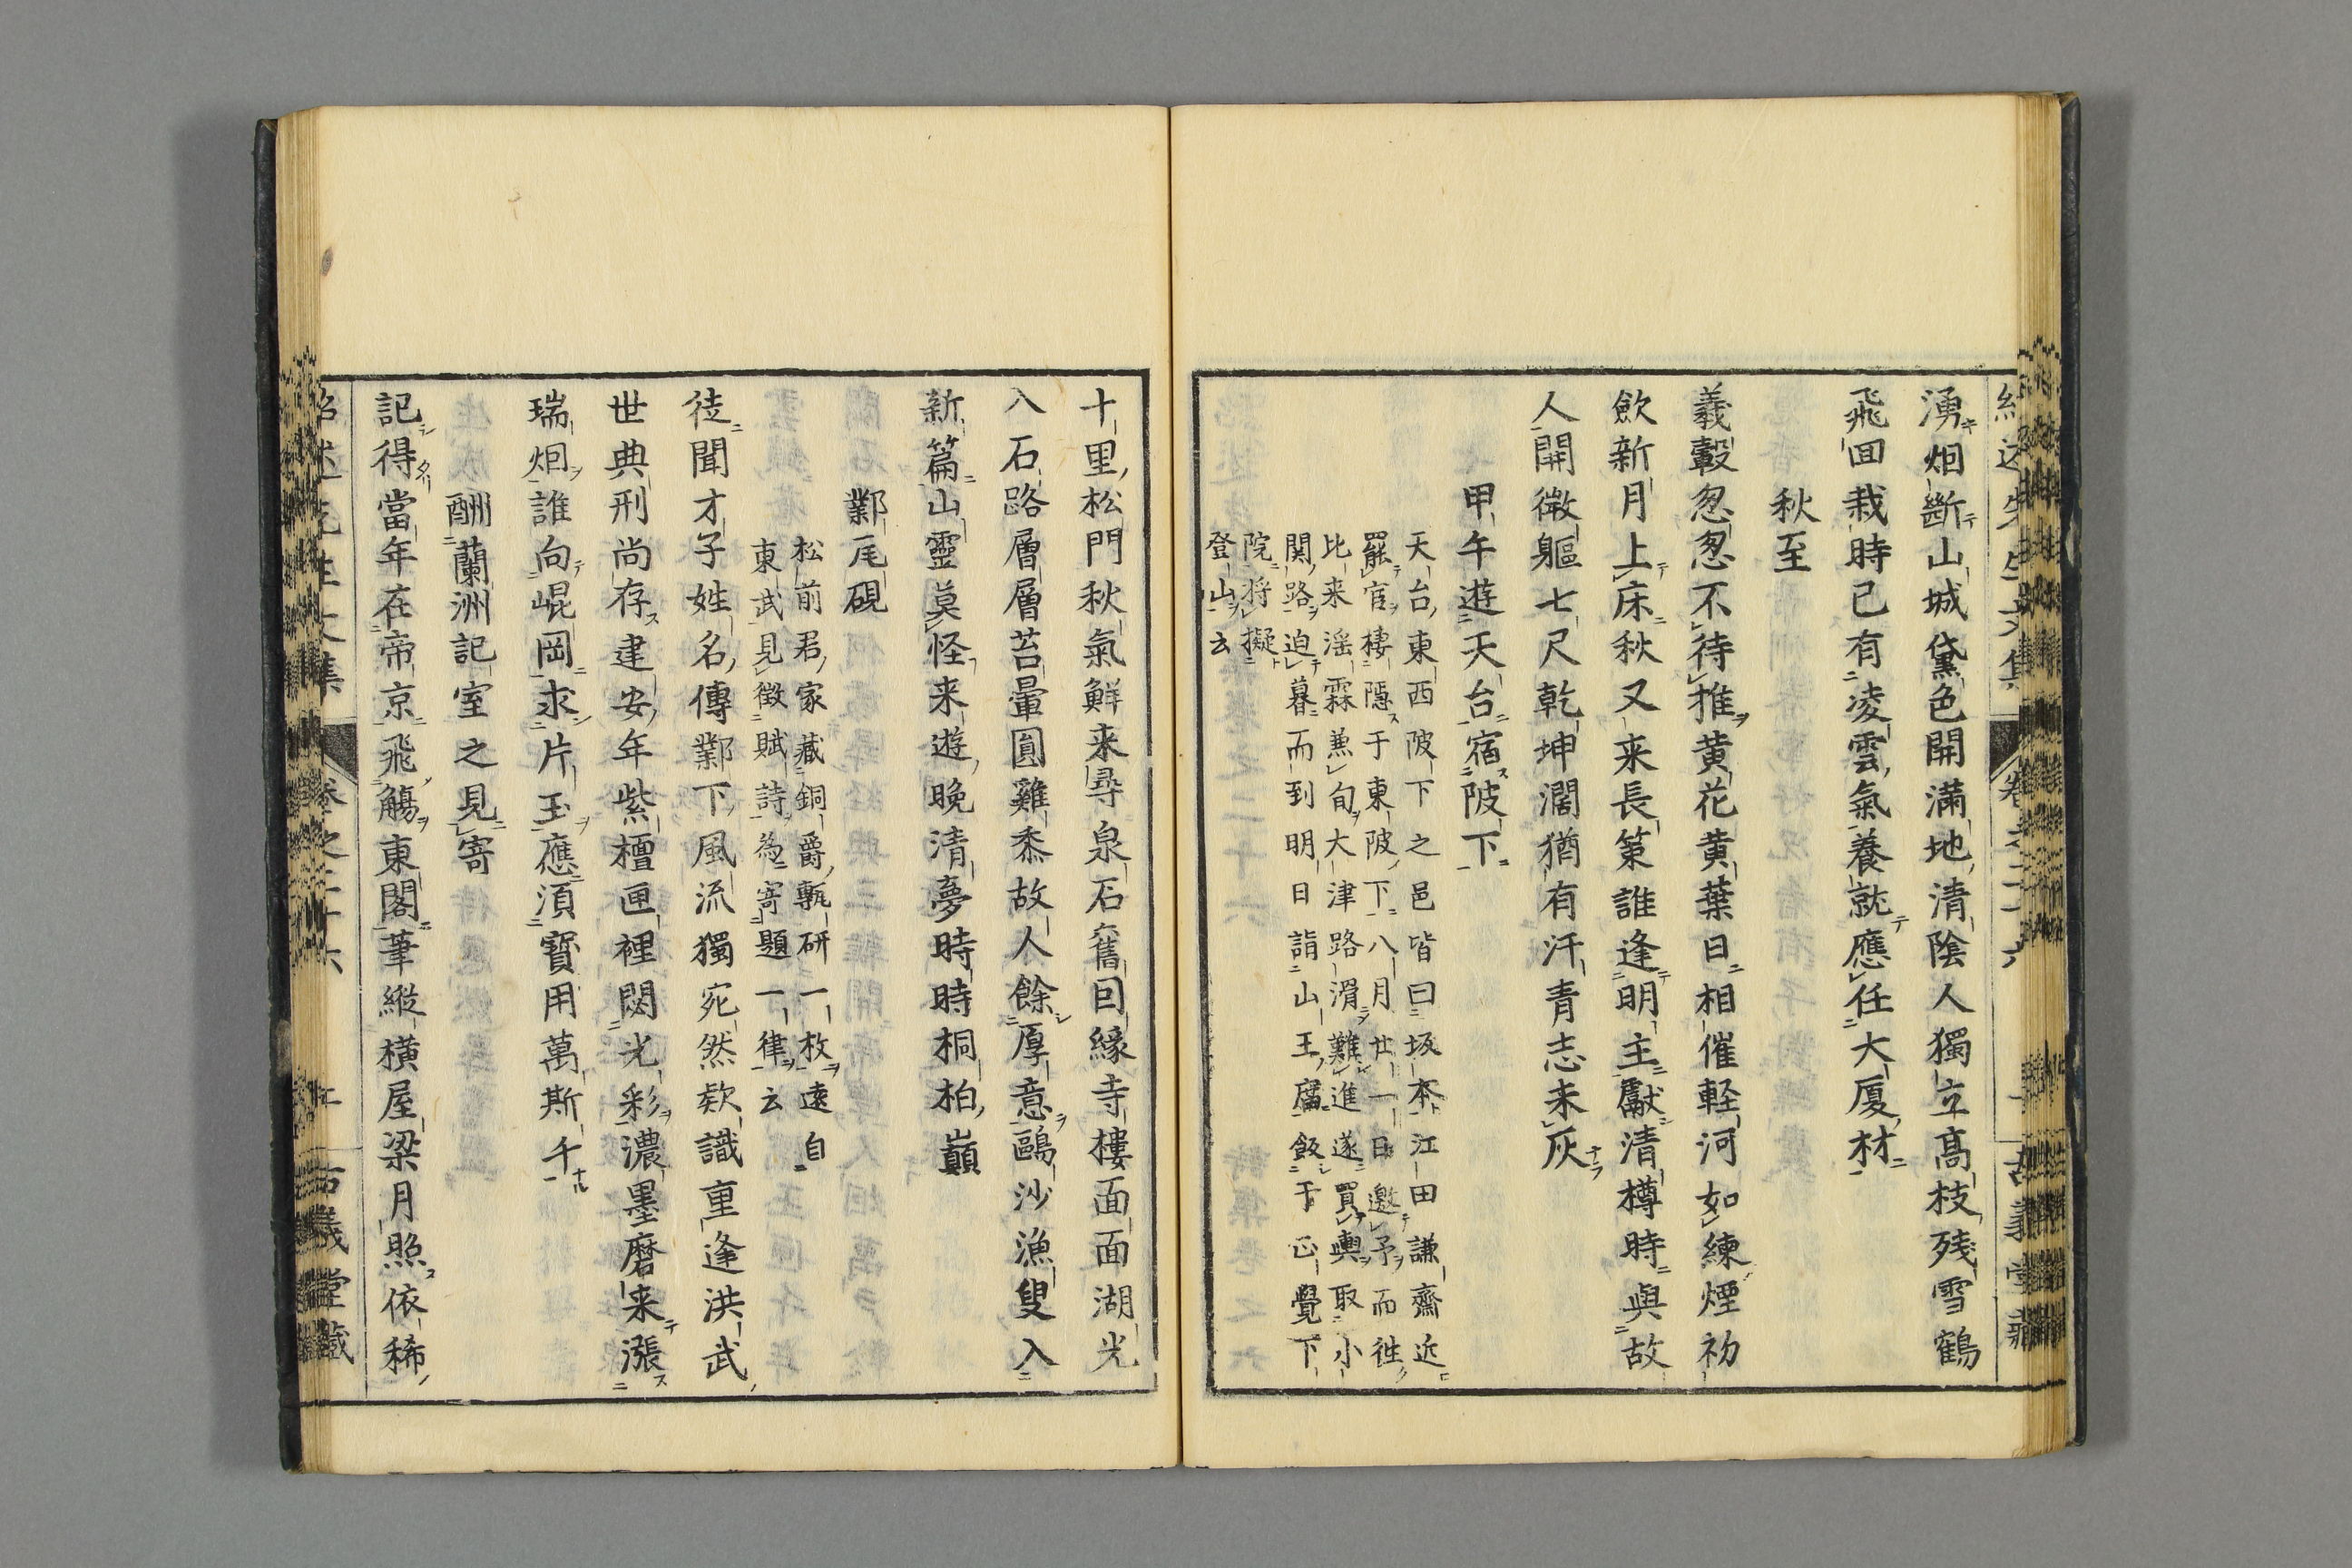 湧烟斷山城黛色開滿地清陰人獨立髙枝殘雪鶴
飛回栽時已有凌雲氣養就應任大厦材
秋至
義轂忽忽不待推黄花黄葉日相催軽河如練煙初
歛新月上床秋又来長策誰逢明主獻清樽時與故
人開微軀七尺乾坤濶猶有汗青志未灰
甲午遊天台宿陂下
天台東西陂下之邑皆曰坂本江田謙齋近
罷官棲隱于東陂下八月廿一日邀予而徃
比来滛霖兼旬大津路滑難進遂買輿取小
関路迫暮而到明日詣山王廟飯于正覺下
院将擬
登山云
十里松門秋氣鮮来尋泉石舊因縁寺樓面面湖光
入石路層層苔暈圓雞黍故人餘厚意鷗沙漁叟入
新篇山靈莫怪来遊晩清夢時時桐柏巓
鄴瓦硯
松前君家藏銅爵甎研一枚遠自
東武見徴賦詩為寄題一律云
徒聞才子姓名傳鄴下風流獨宛然欵識重逢洪武
世典刑尚存建安年紫檀匣裡閟光彩濃墨磨来漲
瑞烟誰向崐岡求片玉應湏寳用萬斯千
酬蘭洲記室之見寄
記得當年在帝京飛觴東閣筆縦横屋梁月照依稀
紹述先生文集 卷之二十六 古義堂藏